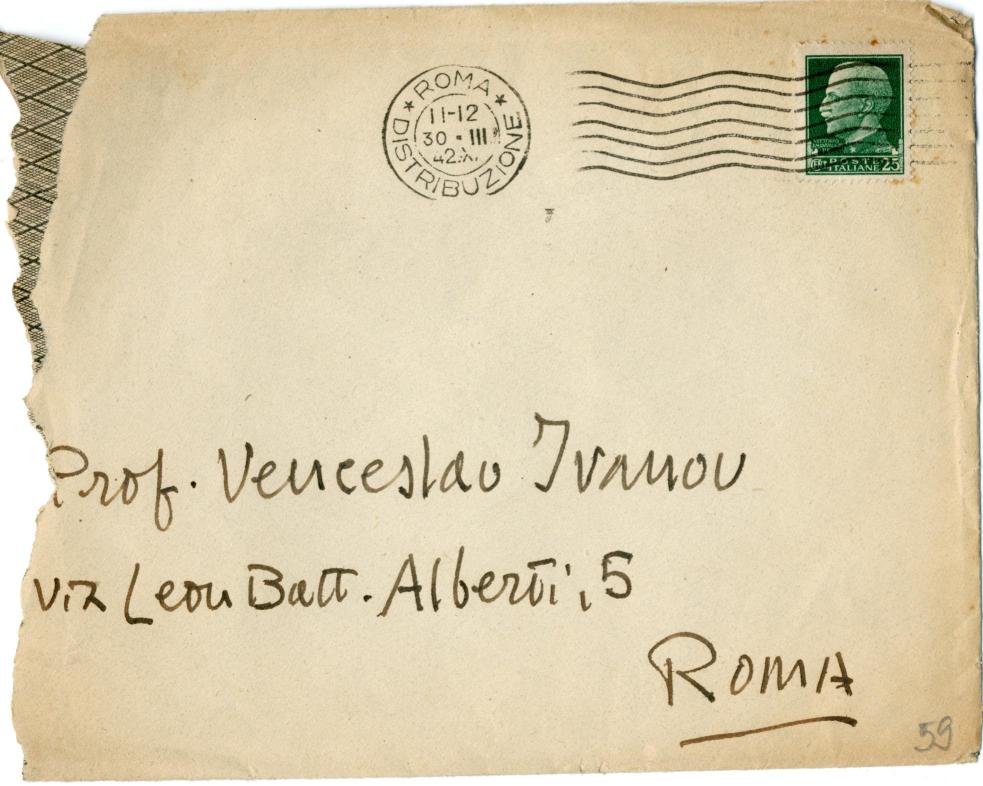 ROMA
11-12
30 · III
42.X.
DISTRIBUZIONE
POSTE
ITALIANE 25
Prof. Venceslao Ivanov
via Leon Batt. Alberti, 5
ROMA
59